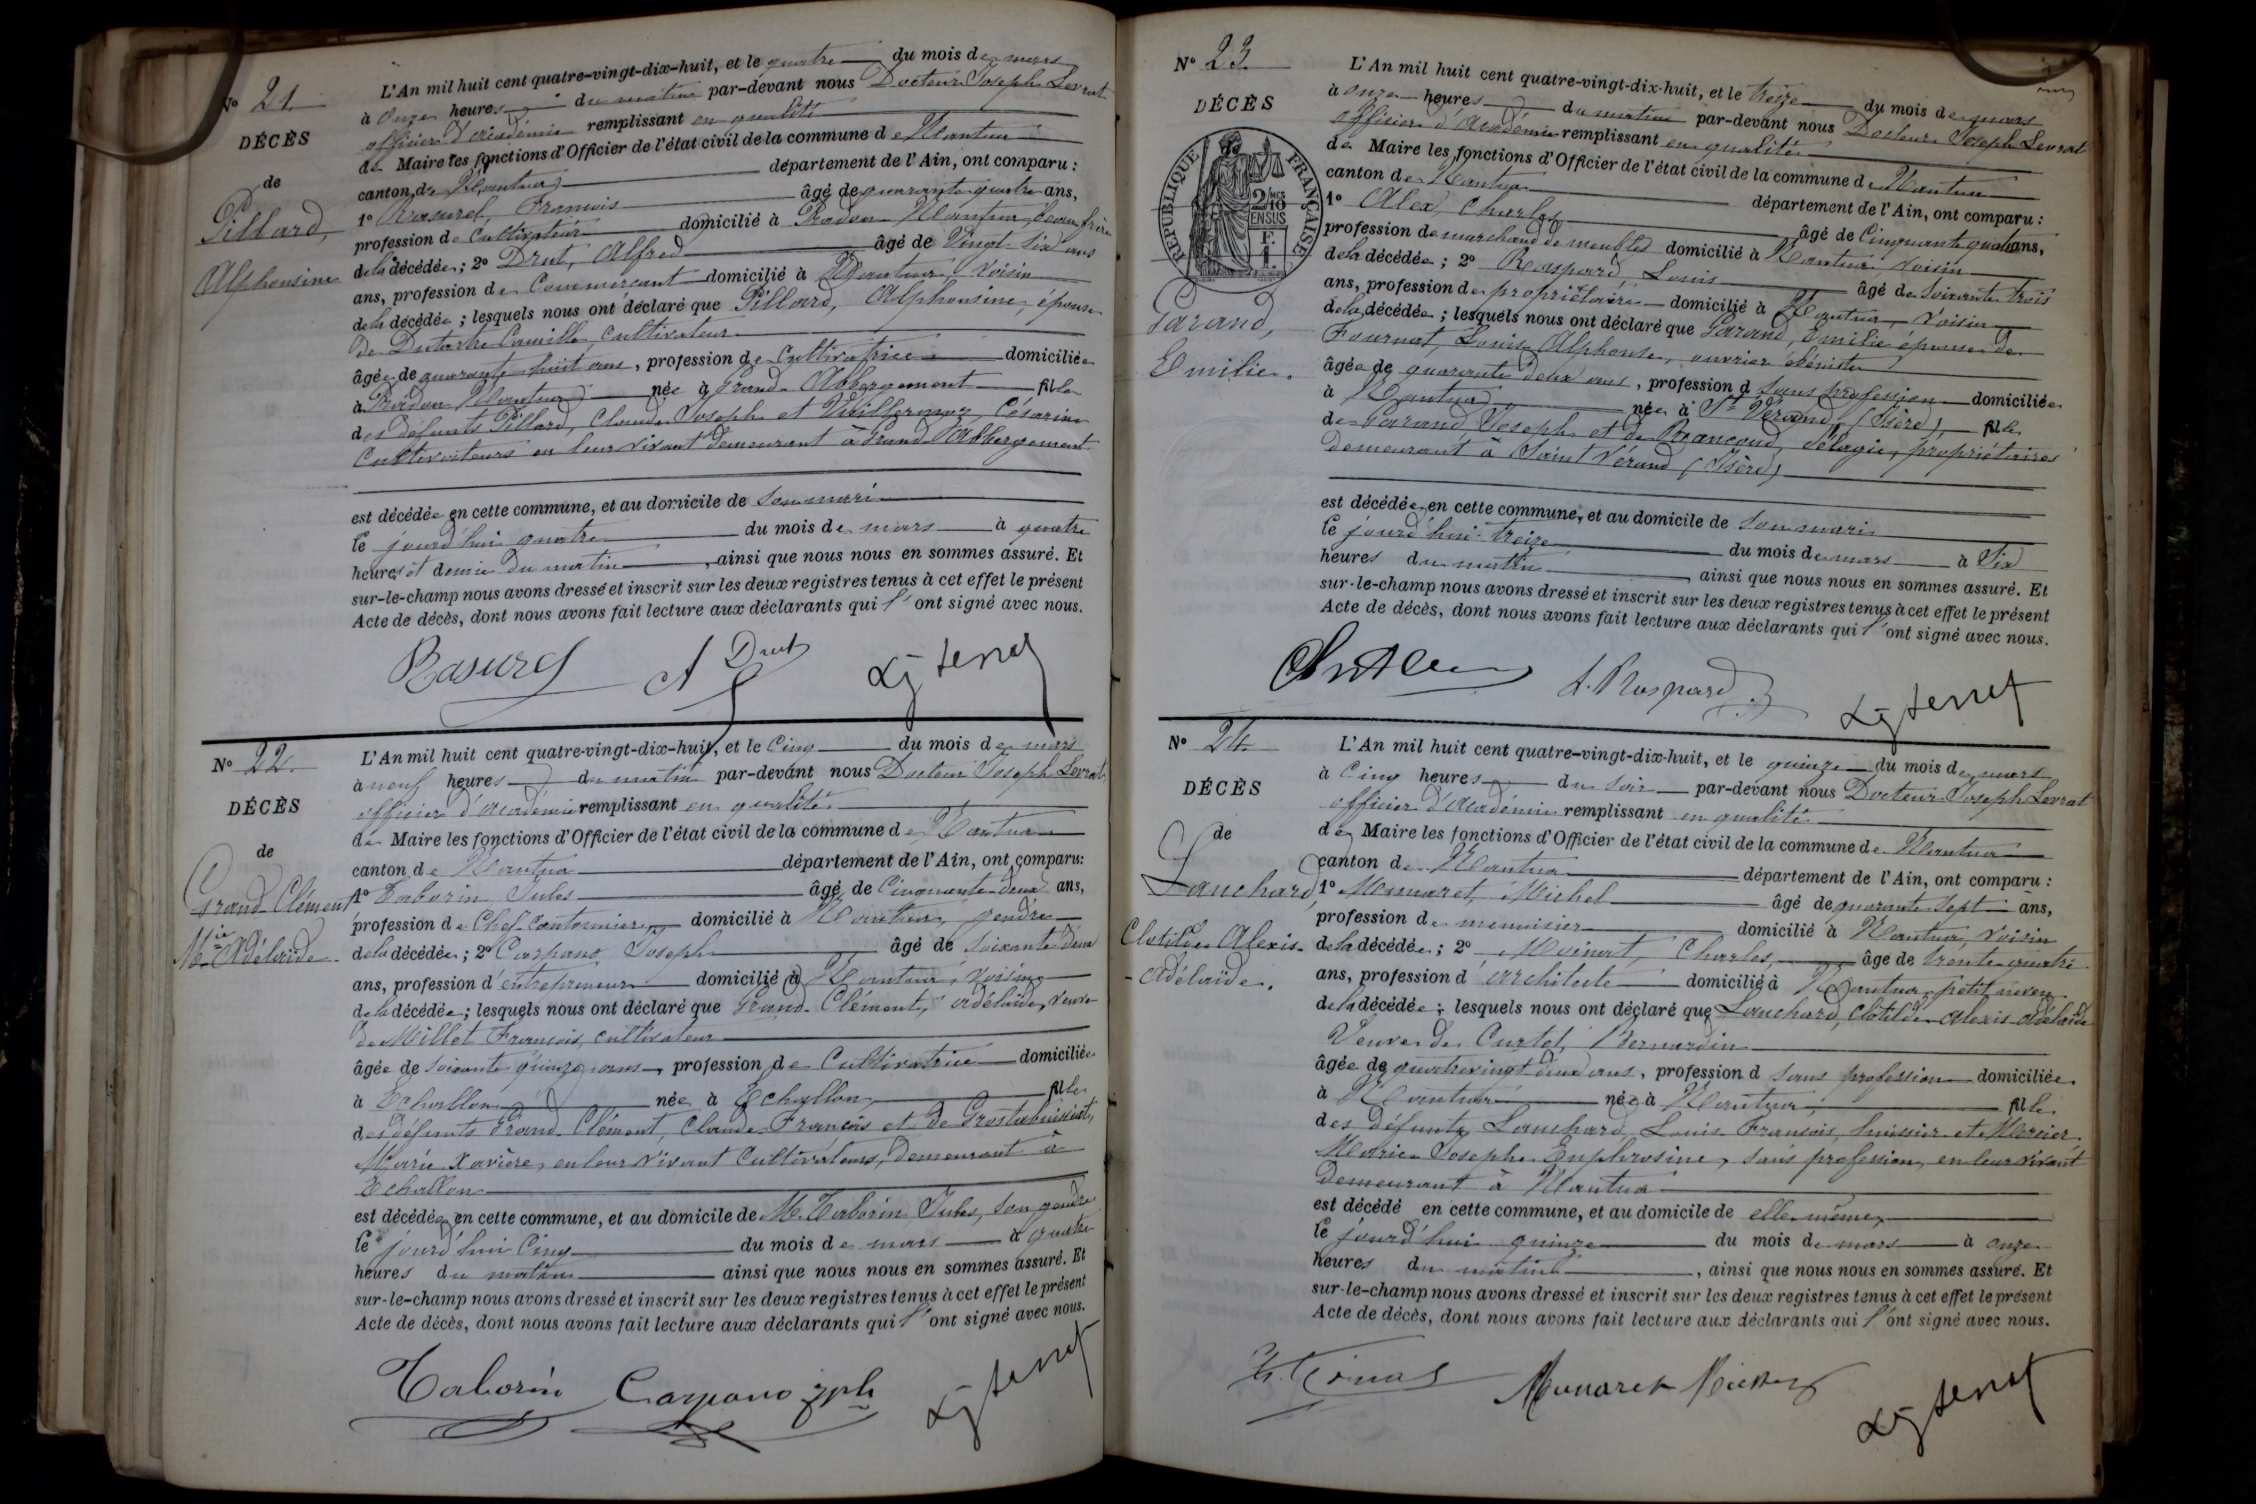 N° 21
DÉCÈS
de
Pillard,
Alphonsine
L'An mil huit cent quatre-vingt-dix-huit, et le quatre du mois de mars
à onze heures du matin par-devant nous Docteur Joseph Levrat
officier d'académie remplissant en qualité
de Maire les fonctions d'Officier de l'état civil de la commune de Nantua
canton de Nantua département de l'Ain, ont comparu :
1° Rasurel, François âgé de quarante quatre ans,
profession de cultivateur domicilié à Nantua, beau frère
de la décédée ; 2° Drut, Alfred âgé de Vingt-six ans
ans, profession de Commerçant domicilié à Nantua, voisin
de la décédée ; lesquels nous ont déclaré que Pillard, Alphonsine, épouse
de Camille, cultivateur
âgée de quarante huit ans, profession de Cultivatrice domiciliée
à Nantua née à Grand Abbergement fille
des défunts Pillard, Claude Joseph et Vuillermoz, Césarine
Cultivateurs en leur vivant demeurant à Grand Abbergement
est décédée en cette commune, et au domicile de son mari
le jourd'hui quatre du mois de mars à quatre
heures et demie du matin, ainsi que nous nous en sommes assuré. Et
sur-le-champ nous avons dressé et inscrit sur les deux registres tenus à cet effet le présent
Acte de décès, dont nous avons fait lecture aux déclarants qui l'ont signé avec nous.
Rasurel A Drut
N° 22
DÉCÈS
de
Grand Clément
Mie Adélaïde
L'An mil huit cent quatre-vingt-dix-huit, et le Cinq du mois de mars
à neuf heures du matin par-devant nous Docteur Joseph Levrat
officier d'académie remplissant en qualité
de Maire les fonctions d'Officier de l'état civil de la commune de Nantua
canton de Nantua département de l'Ain, ont comparu:
1° Taborin Jules âgé de Cinquante deux ans,
profession de Chef Cantonnier domicilié à Nantua, gendre
de la décédée ; 2° Carpano Joseph âgé de soixante deux
ans, profession d'entrepreneur domicilié à Nantua, voisin
de la décédée ; lesquels nous ont déclaré que Grand-Clément, adélaïde, veuve
de Millet François cultivateur
âgée de soixante quinze ans, profession de Cultivatrice domiciliée
à Echallon née à Echallon fille
des défunts Grand-Clément, Claude François et de
Marie Xavière, en leur vivant Cultivateurs, demeurant à
Echallon
est décédée en cette commune, et au domicile de M. Taborin Jules, son gendre
le jourd'hui Cinq du mois de mars à quatre
heures du matin ainsi que nous nous en sommes assuré. Et
sur-le-champ nous avons dressé et inscrit sur les deux registres tenus à cet effet le présent
Acte de décès, dont nous avons fait lecture aux déclarants qui l'ont signé avec nous.
Taborin Carpano jph
N° 23
DÉCÈS
RÉPUBLIQUE FRANÇAISE
2/10 EN SUS
Garand,
Emilie.
L'An mil huit cent quatre-vingt-dix-huit, et le treize du mois de mars
à onze heures du matin par-devant nous Docteur Joseph Levrat
officier d'académie remplissant en qualité
de Maire les fonctions d'Officier de l'état civil de la commune de Nantua
canton de Nantua département de l'Ain, ont comparu :
1° Alex, Charles âgé de Cinquante quatre ans,
profession de marchand de meubles domicilié à Nantua, voisin
de la décédée ; 2° Raspard, Louis âgé de soixante trois
ans, profession de propriétaire domicilié à Nantua, voisin
de la décédée ; lesquels nous ont déclaré que Garand, Emilie épouse de
Fournat, Louis Alphonse, ouvrier ébéniste
âgée de quarante deux ans, profession d sans profession domiciliée
à Nantua née à St Vérand, (Isère), fille
de Garand Joseph et de Pélagie, propriétaires
demeurant à Saint Vérand (Isère)
est décédée en cette commune, et au domicile de son mari
le jourd'hui treize du mois de mars à six
heures du matin, ainsi que nous nous en sommes assuré. Et
sur-le-champ nous avons dressé et inscrit sur les deux registres tenus à cet effet le présent
Acte de décès, dont nous avons fait lecture aux déclarants qui l'ont signé avec nous.
L. Raspard
N° 24
DÉCÈS
de
Lanchard,
Clotilde Alexis
-adélaïde.
L'An mil huit cent quatre-vingt-dix-huit, et le quinze du mois de mars
à Cinq heures du soir par-devant nous Docteur Joseph Levrat
officier d'académie remplissant en qualité
de Maire les fonctions d'Officier de l'état civil de la commune de Nantua
canton de Nantua département de l'Ain, ont comparu :
1° Monnaret, Michel âgé de quarante sept ans,
profession de menuisier domicilié à Nantua, voisin
de la décédée ; 2° Moinat, Charles, âgé de trente quatre
ans, profession d'architecte domicilié à Nantua, petit neveu
de la décédée ; lesquels nous ont déclaré que Lanchard, Clotilde alexis adélaïde
Veuve de Curtet, Bernardin
âgée de quatrevingt deux ans, profession d sans profession domiciliée
à Nantua née à Nantua, fille
des défunts Lanchard, Louis François, huissier et Mercier
Marie Josephe Euphrosine, sans profession, en leur vivant
demeurant à Nantua
est décédé en cette commune, et au domicile de elle même,
le jourd'hui quinze du mois de mars à onze
heures du matin, ainsi que nous nous en sommes assuré. Et
sur-le-champ nous avons dressé et inscrit sur les deux registres tenus à cet effet le présent
Acte de décès, dont nous avons fait lecture aux déclarants qui l'ont signé avec nous.